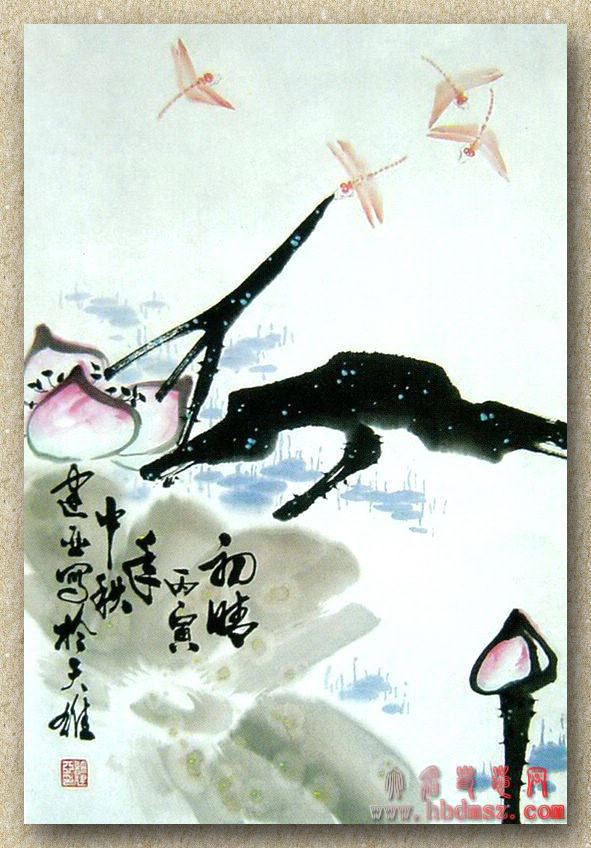 初晴
丙寅
年
中秋
建亚写於天雄
www.hbdmsz.com